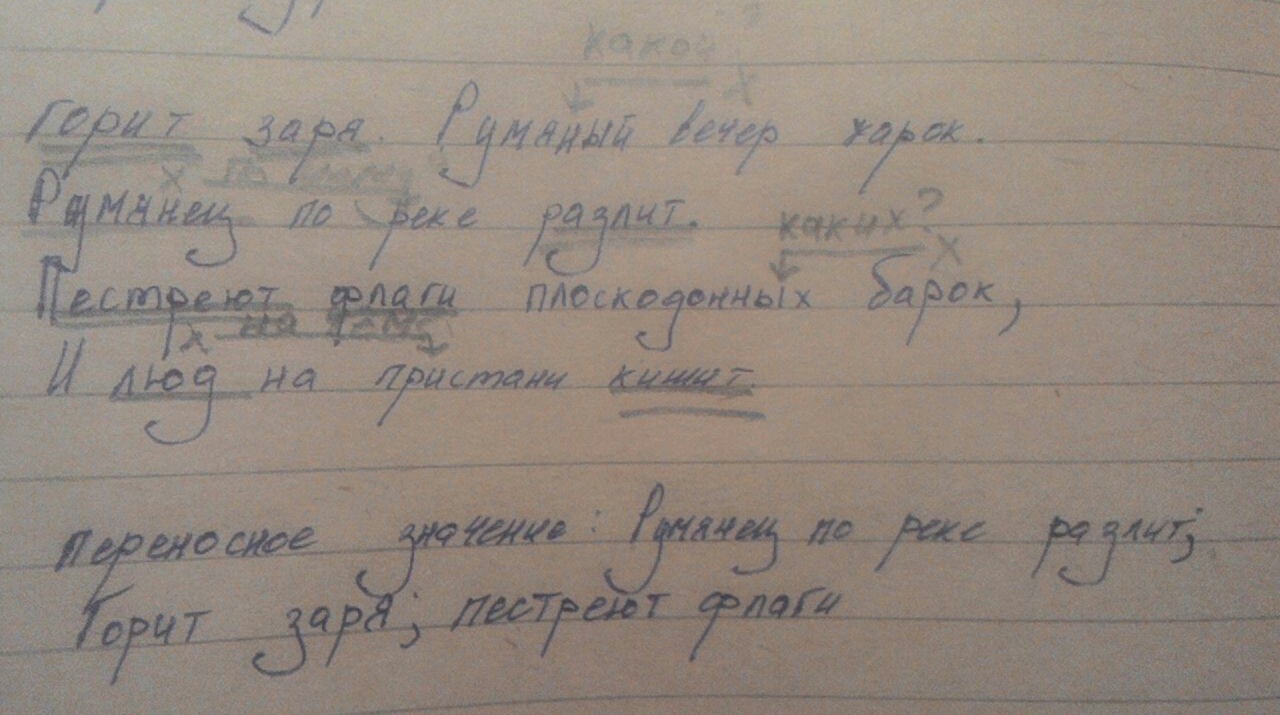 какой
Горит заря. Румяный вечер жарок.
Румянец по реке разлит.
каких?
Пестреют флаги плоскодонных барок,
на
И люд на пристани кишит.
переносное значение: Румянец по реке разлит;
Горит заря; пестреют флаги